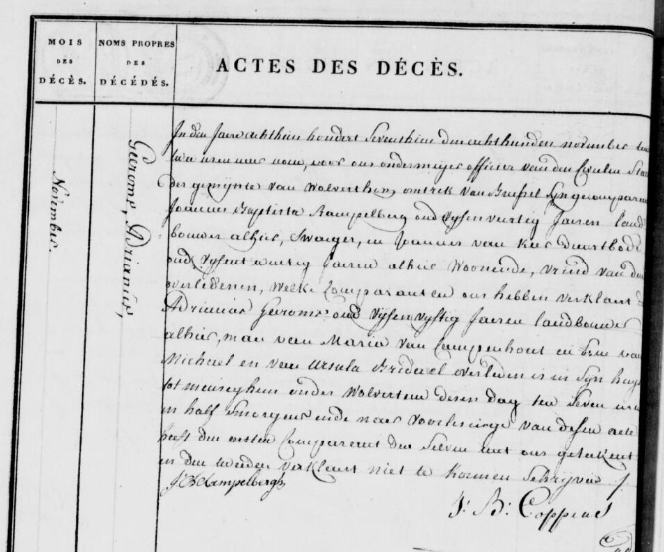 MOIS
DES
DÉCÈS.
NOMS PROPRES
DES
DÉCÉDÉS.
ACTES DES DÉCÈS.
Novembre.
Geeroms, Adrianus,
In den Jaere achthien hondert Seventhien den achthunden november ten
twee uren naer noen, voor ons onderschreven officier van den Civielen Staet
der gemynte van Wolverthem omtrek van Brussel Syn gecompareert
Joannes Baptista Rampelberg oud vyfenvertig Jaeren land
bouwer alhier, Swaeger, en Joannes van
oud vyfentwintig Jaeren alhier Woonende, vriend van den
overledenen, Welke Comparanten ons hebben verklaert
Adrianus Geeroms oud vyfenvyftig Jaeren landbouwer
alhier, man van Maria van Campenhout en Sone van
Michael en van Ursula overleden is in Syn huys
tot meuseghem onder Wolverthem desen dag ten Seven uren
en half Smorgens ende naer voorlesinge van desen acte
heeft den eersten Comparant den Selven met ons geteekent
en den tweeden verklaert niet te konnen Schryven /.
J B Rampelbergh
J: B: Coppens